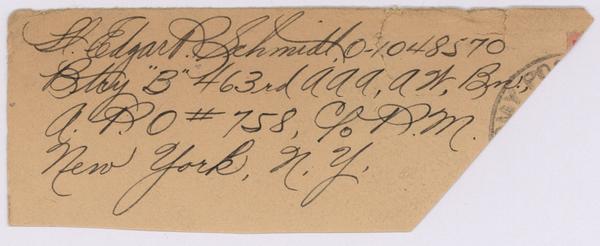 Lt. Edgar P. Schmidt, O-1048570
Btry "B" 463rd AAA, AW, Bn.,
A. P. O # 758, c/o P. M.
New York, N. Y.
MY POS